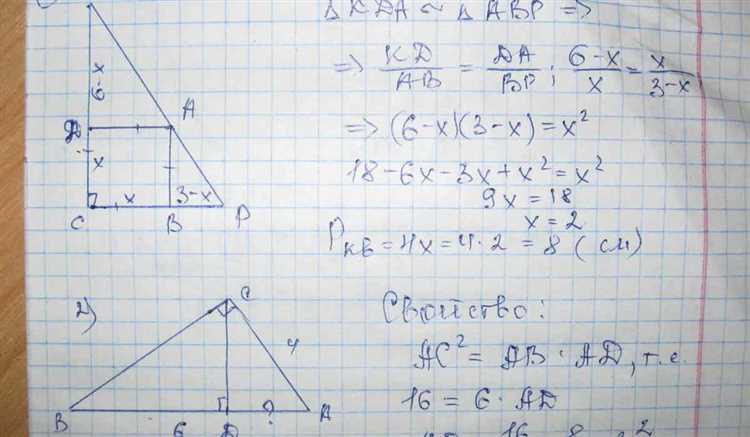 △KDA ~ △ABP =>
=> KD/AB = DA/BP ; (6-x)/x = x/(3-x)
=> (6-x)(3-x) = x²
18-6x-3x+x² = x²
9x = 18
x = 2
Pкв = 4x = 4·2 = 8 (см)
6-x
A
D
x
x
3-x
C
B
P
2)
C
4
B
6
D
?
A
Свойство:
AC² = AB · AD, т.е.
16 = 6 · AD